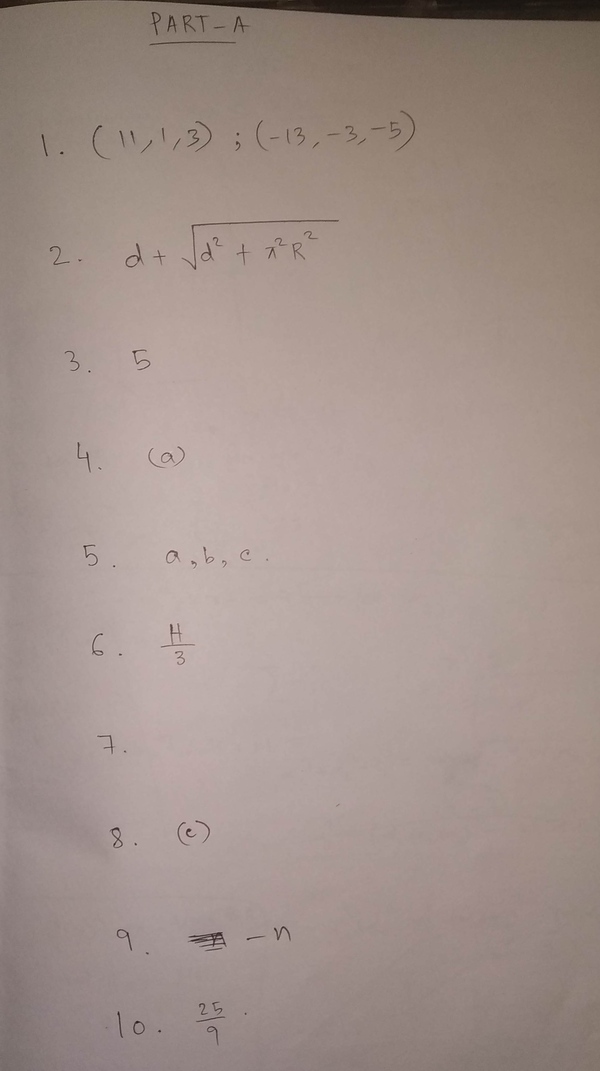 PART-A
1. (11,1,3) ; (-13,-3,-5)
2. d + √(d² + π²R²)
3. 5
4. (a)
5. a, b, c.
6. H/3
7.
8. (c)
9. -n
10. 25/9.